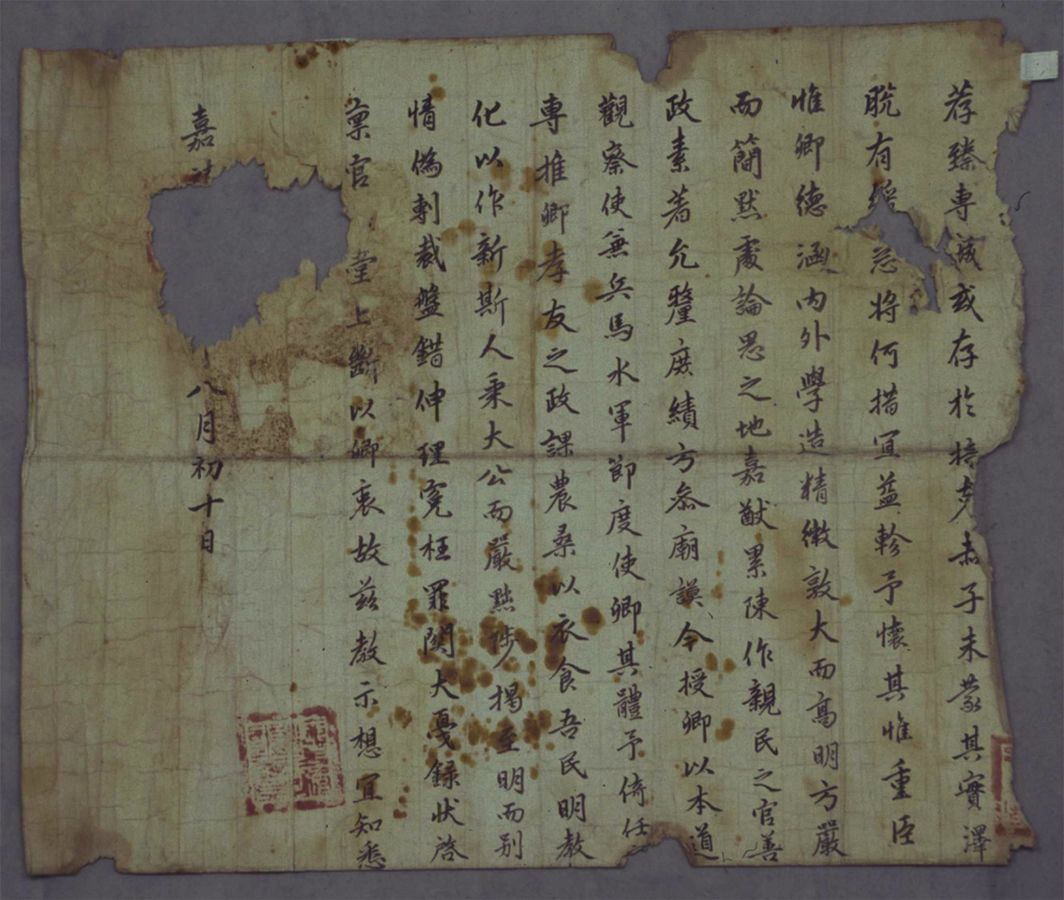 荐臻專誠或存於掊克赤子未蒙其實澤
脫有緩急將何措宜益軫予懷其惟重臣
惟卿德涵內外學造精微敦大而高明方嚴
而簡默處論思之地嘉猷累陳作親民之官善
政素著允釐庶績方參廟謨今授卿以本道
觀察使兼兵馬水軍節度使卿其體予倚任
專推卿孝友之政課農桑以衣食吾民明敎
化以作新斯人秉大公而嚴黜陟揭至明而別
情僞剸裁盤錯伸理冤枉罪關大戞錄狀啓
稟官 堂上斷以卿衷故玆敎示想宜知悉
嘉 八月初十日